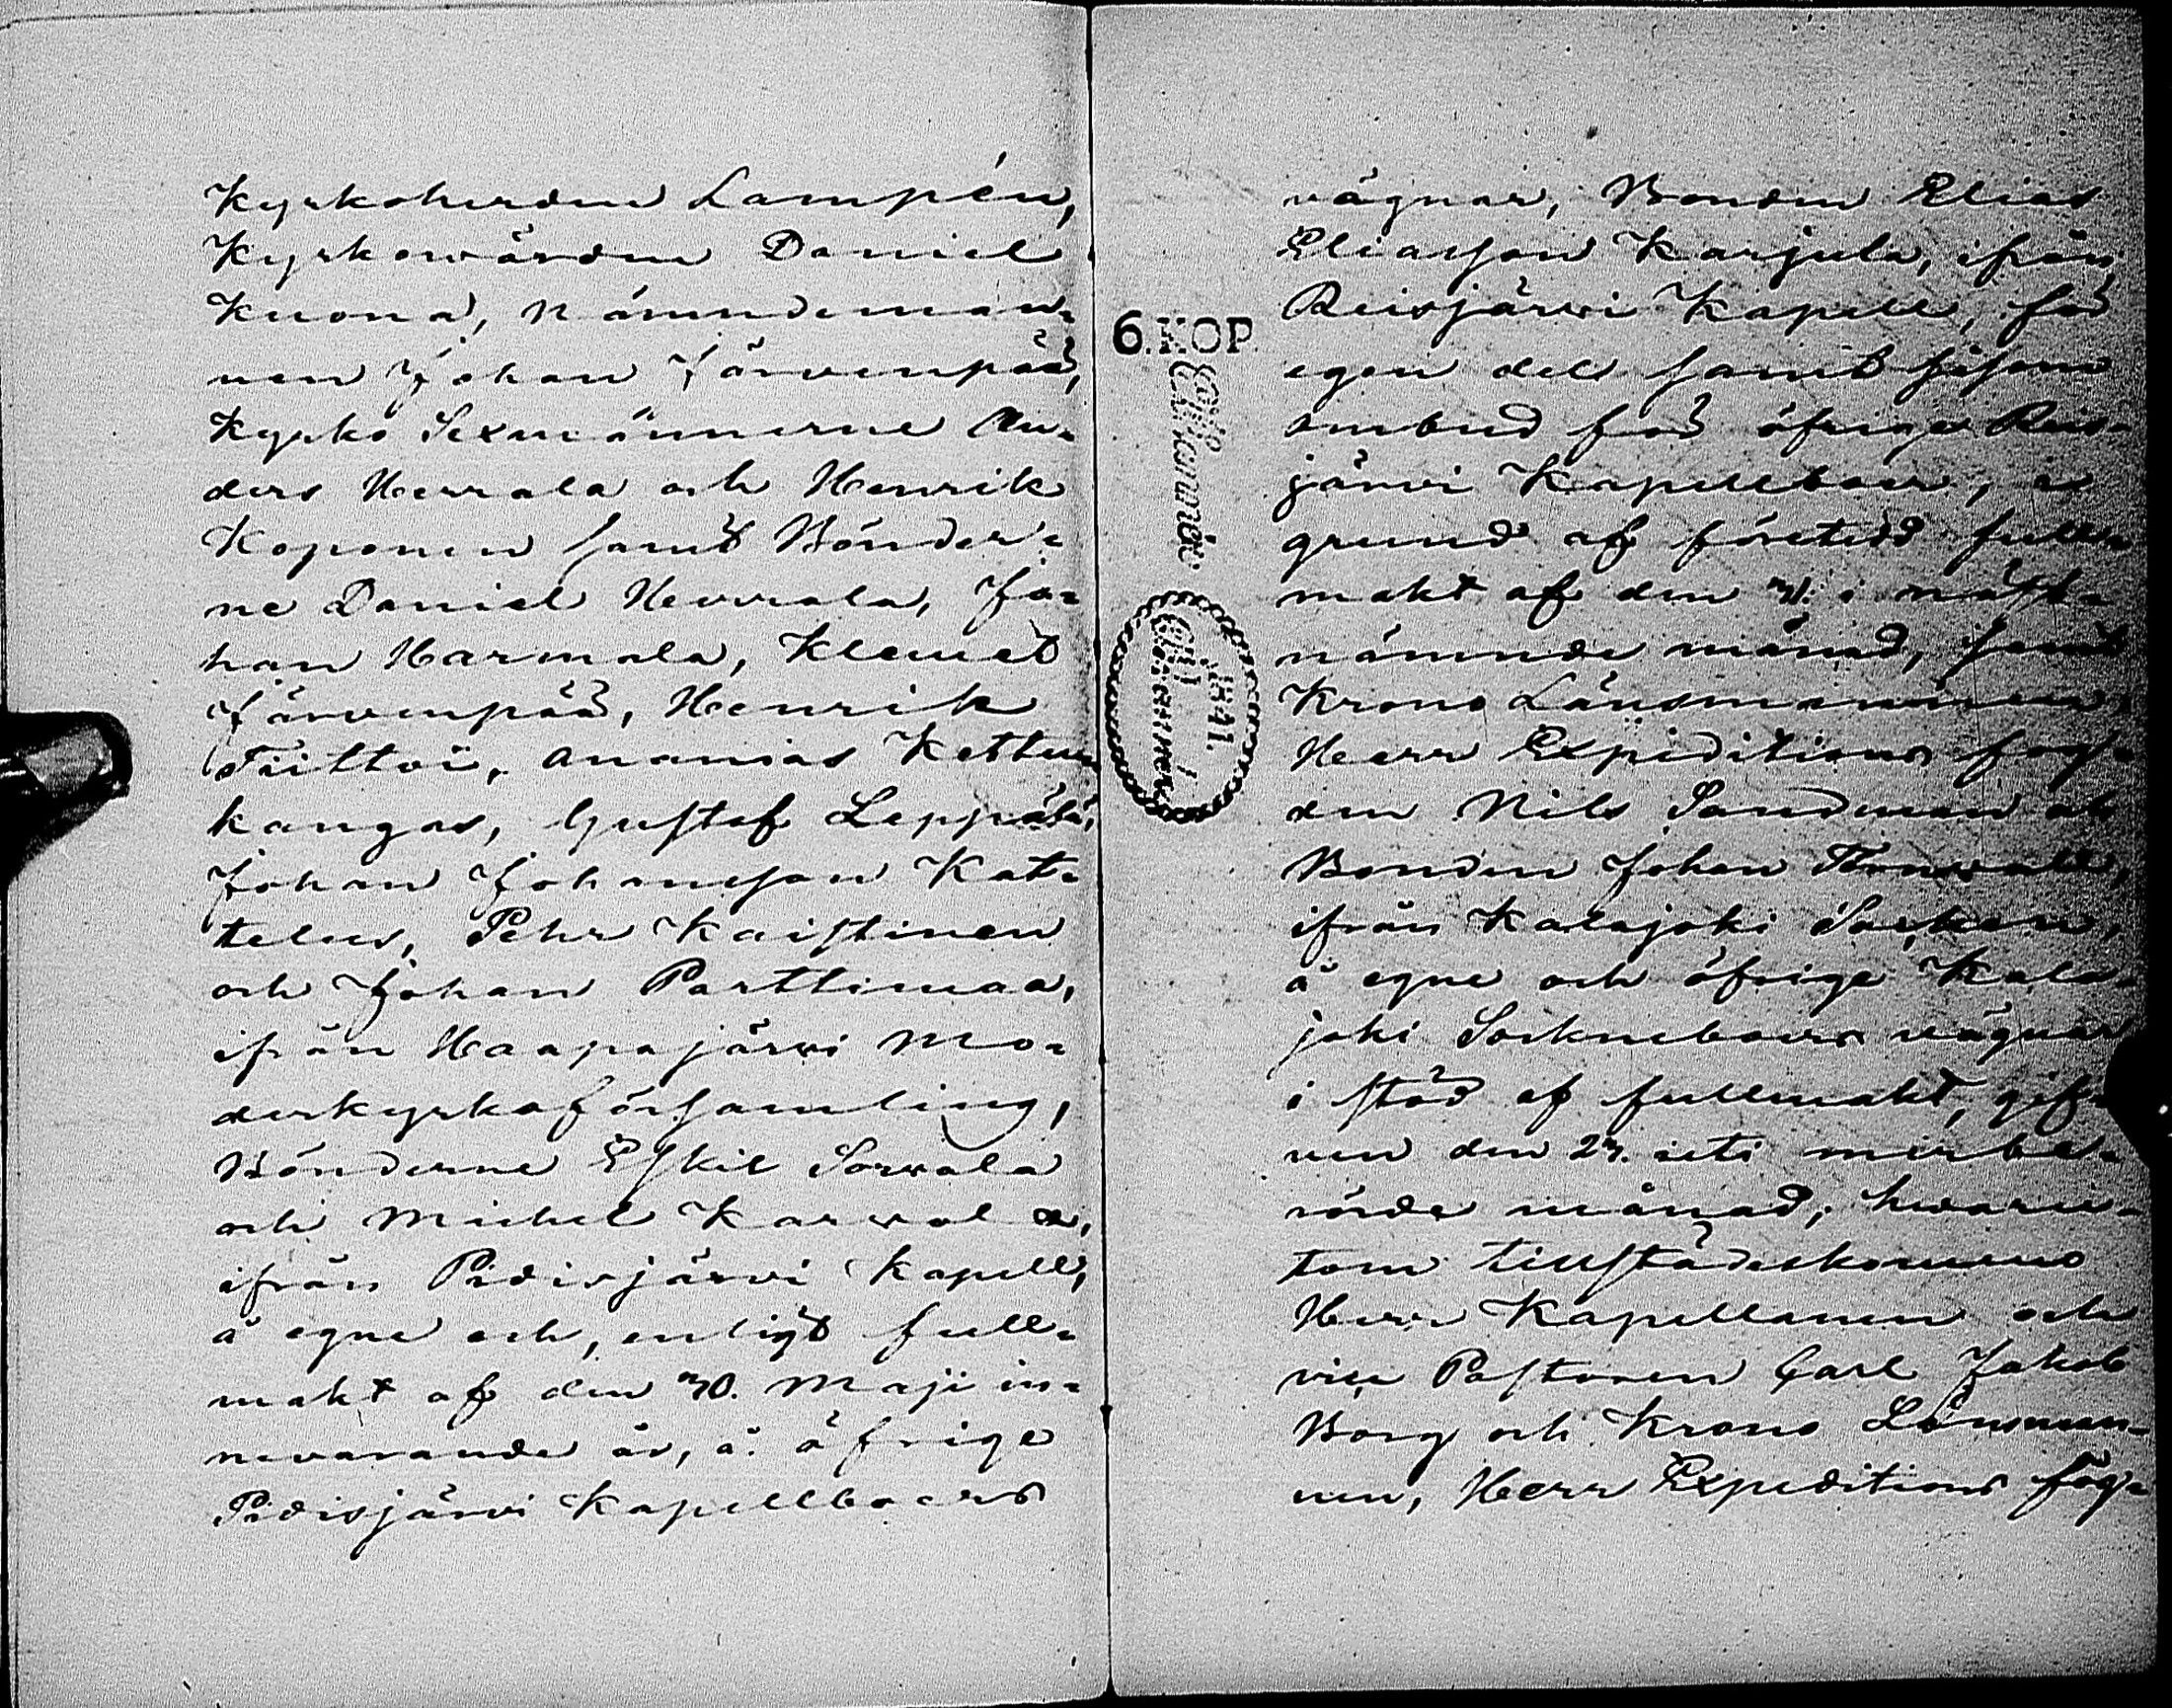 Kyrkoherden Lampén,
Kyrkowärden Daniel
Kuona, Nämndeman-
nen Johan Järvenpää,
Kyrko Sexmännerne An-
ders Herrala och Henrik
Koponen samt Bönder-
ne Daniel Herrala, Jo-
han Harmala, Klemet
Järvenpää, Henrik
Tiitto, Ananias Kettun-
kangas, Gustaf Leppälä,
Johan Johansson Kat-
telus, Pehr Kaistinen
och Johan Parttimaa,
ifrån Haapajärvi Mo-
derkyrkoförsamling,
Bönderne Eskil Sorvala
och Michel Karvala,
ifrån Pidisjärvi Kapell,
å egne och, enligt full-
makt af den 30. Maji in-
nevarande år, å öfrige
Pidisjärvi Kapellboers
6. KOP.
1841.
vägnar, Bonden Elias
Eliasson Karjula, ifrån
Reisjärvi Kapell, för
egen del samt såsom
ombud för öfrige Reis-
järvi Kapellboer, i
grund af företedd full-
makt af den 31. i näst-
nämnde månad, samt
Krono Länsmannen,
Herr Expeditions fog-
den Nils Sandman och
Bonden Johan
ifrån Kalajoki Socken,
å egne och öfrige Kala-
joki Sockneboers vägnar
i stöd af fullmakt, gif-
ven den 23. uti merbe-
rörde månad; hwaru-
tom tillstädeskommo
Herr Kapellanen och
vice Pastoren Carl Jakob
Borg och Krono Länsman-
nen, Herr Expeditions fog-